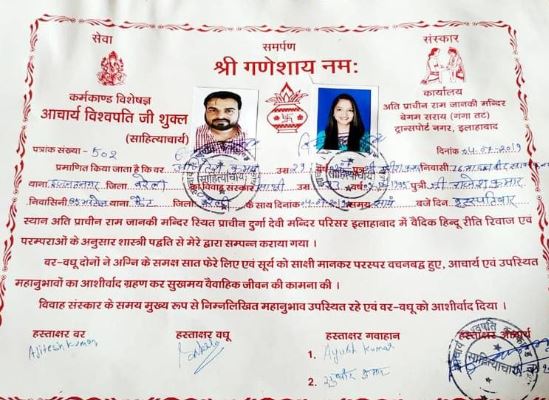 सेवा
समर्पण
संस्कार
श्री गणेशाय नमः
कर्मकाण्ड विशेषज्ञ
आचार्य विश्वपति जी शुक्ल
(साहित्याचार्य)
कार्यालय
अति प्राचीन राम जानकी मन्दिर
बेगम सराय (गंगा तट)
ट्रान्सपोर्ट नगर, इलाहाबाद
पत्रांक संख्या - 502
दिनांक 04.07.2019
प्रमाणित किया जाता है कि वर उम्र निवासी
थाना जिला बरेली का विवाह संस्कार साक्षी पुत्री श्री राजेश कुमार
निवासिनी थाना कैंट जिला के साथ दिनांक समय बजे दिन बृहस्पतिवार
स्थान अति प्राचीन राम जानकी मन्दिर स्थित प्राचीन दुर्गा देवी मन्दिर परिसर इलाहाबाद में वैदिक हिन्दू रीति रिवाज एवं
परम्पराओं के अनुसार शास्त्री पद्धति से मेरे द्वारा सम्पन्न कराया गया ।
वर-वधू दोनों ने अग्नि के समक्ष सात फेरे लिए एवं सूर्य को साक्षी मानकर परस्पर वचनबद्ध हुए, आचार्य एवं उपस्थित
महानुभावों का आशीर्वाद ग्रहण कर सुखमय वैवाहिक जीवन की कामना की ।
विवाह संस्कार के समय मुख्य रूप से निम्नलिखित महानुभाव उपस्थित रहे एवं वर-वधू को आशीर्वाद दिया ।
हस्ताक्षर वर
हस्ताक्षर वधू
हस्ताक्षर गवाहान
हस्ताक्षर आचार्य
Ajitesh Kumar
1. Ayush Kumar
2. कुमार
साहित्याचार्य